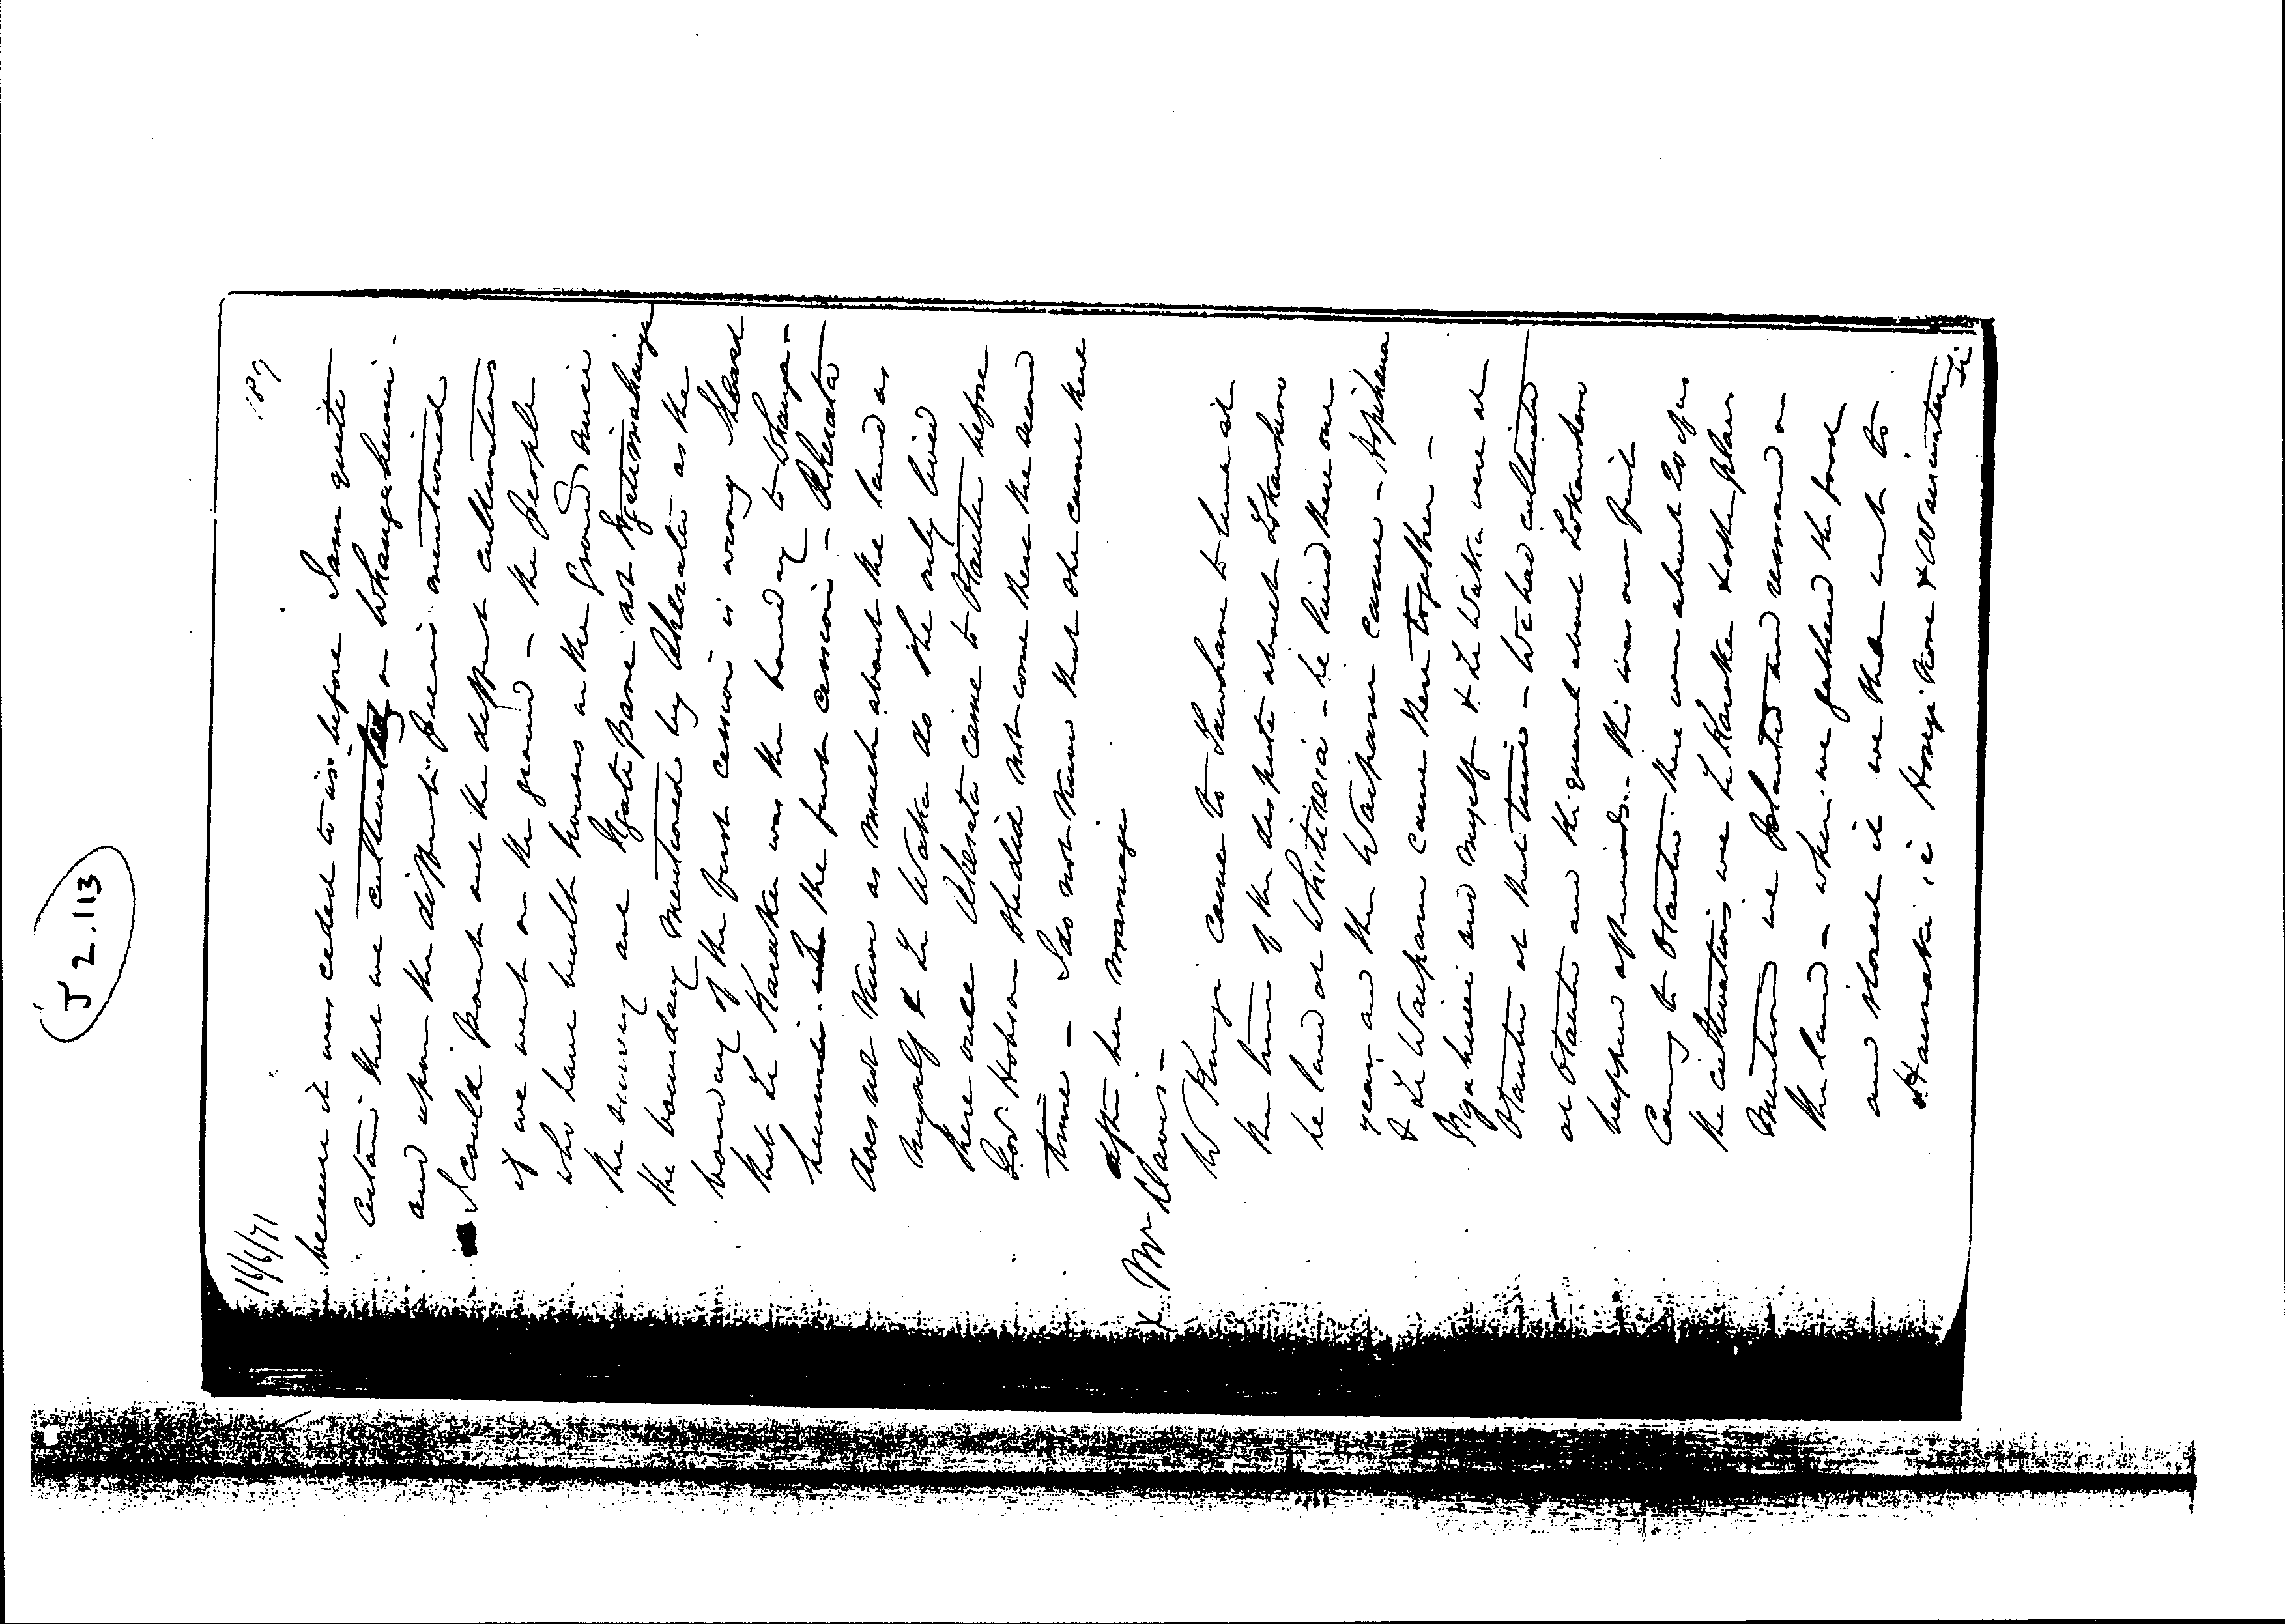 J 2.113
16/6/71
189
because it was ceded to us before I am quite
certain that we cultivated on Whangaheuini.
and upon the different pieces mentioned
I could point out the different cultivations
if we went on the ground – the people
who have built houses on the ground since
the survey are Ngatipare not Ngatimahanga
the boundary mentioned by Akerata as the
boundary of the first cession is wrong I heard
that Te Karaka was the boundary to Whanga-
heuini. the first cession – Akerata
does not know as much about the land as
myself & Te Waka do she only lived
there once Akerata came to Otautu before
Gov. Hobson she did not come there the second
time – I do not know that she came there
after her marriage
x Mr Davis –
W Kingi came to Tauwhare to live at
the time of the dispute about
he lived at Whitikeia – he lived there one
year and then Waipara came – Apihana
& Te Waipara came there together –
Ngaheuini and myself & Te Waka were at
Otautu at that time – We had cultivated
at Otautu and the quarrel about
happened afterwards – this was our first
Coming to Otautu there were about 20 of us
the cultivations were Te Karaka & other places
mentioned we planted and remained on
the land – when we gathered the food
and stored it we then went to
Haumatai i Hongi kore & Waiwatewate